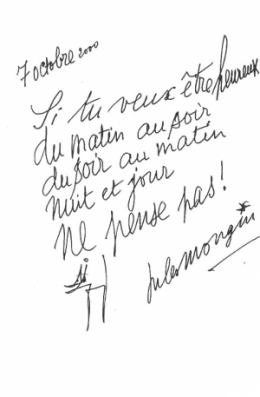 7 octobre 2000
Si tu veux être heureux
du matin au soir
du soir au matin
nuit et jour
ne pense pas!
Jules Mougin